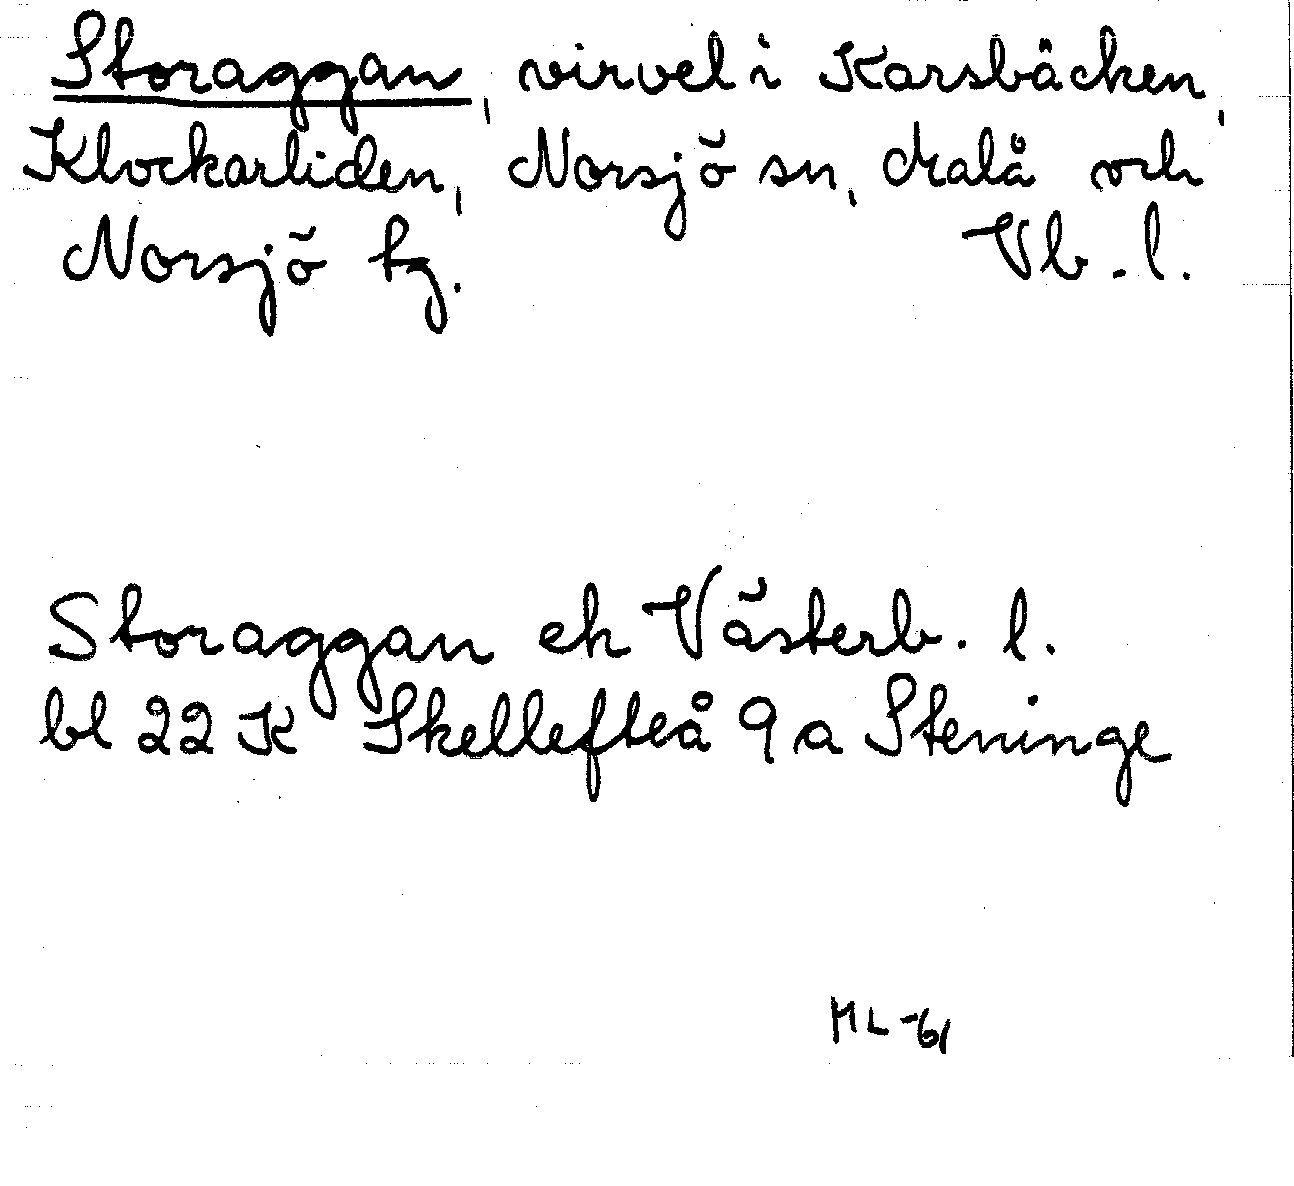 Storaggan, virvel i Karsbäcken,
Klockarliden, Norsjö sn, Malå och
Norsjö tg. Vb. l.
Storaggan ek Västerb. l.
bl 22 K Skellefteå 9 a Steninge
ML -61